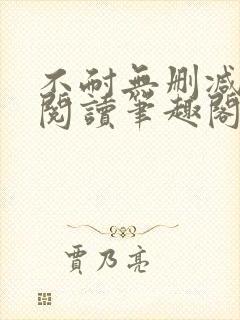 不耐無刪減
閱讀筆趣閣
賈乃亮